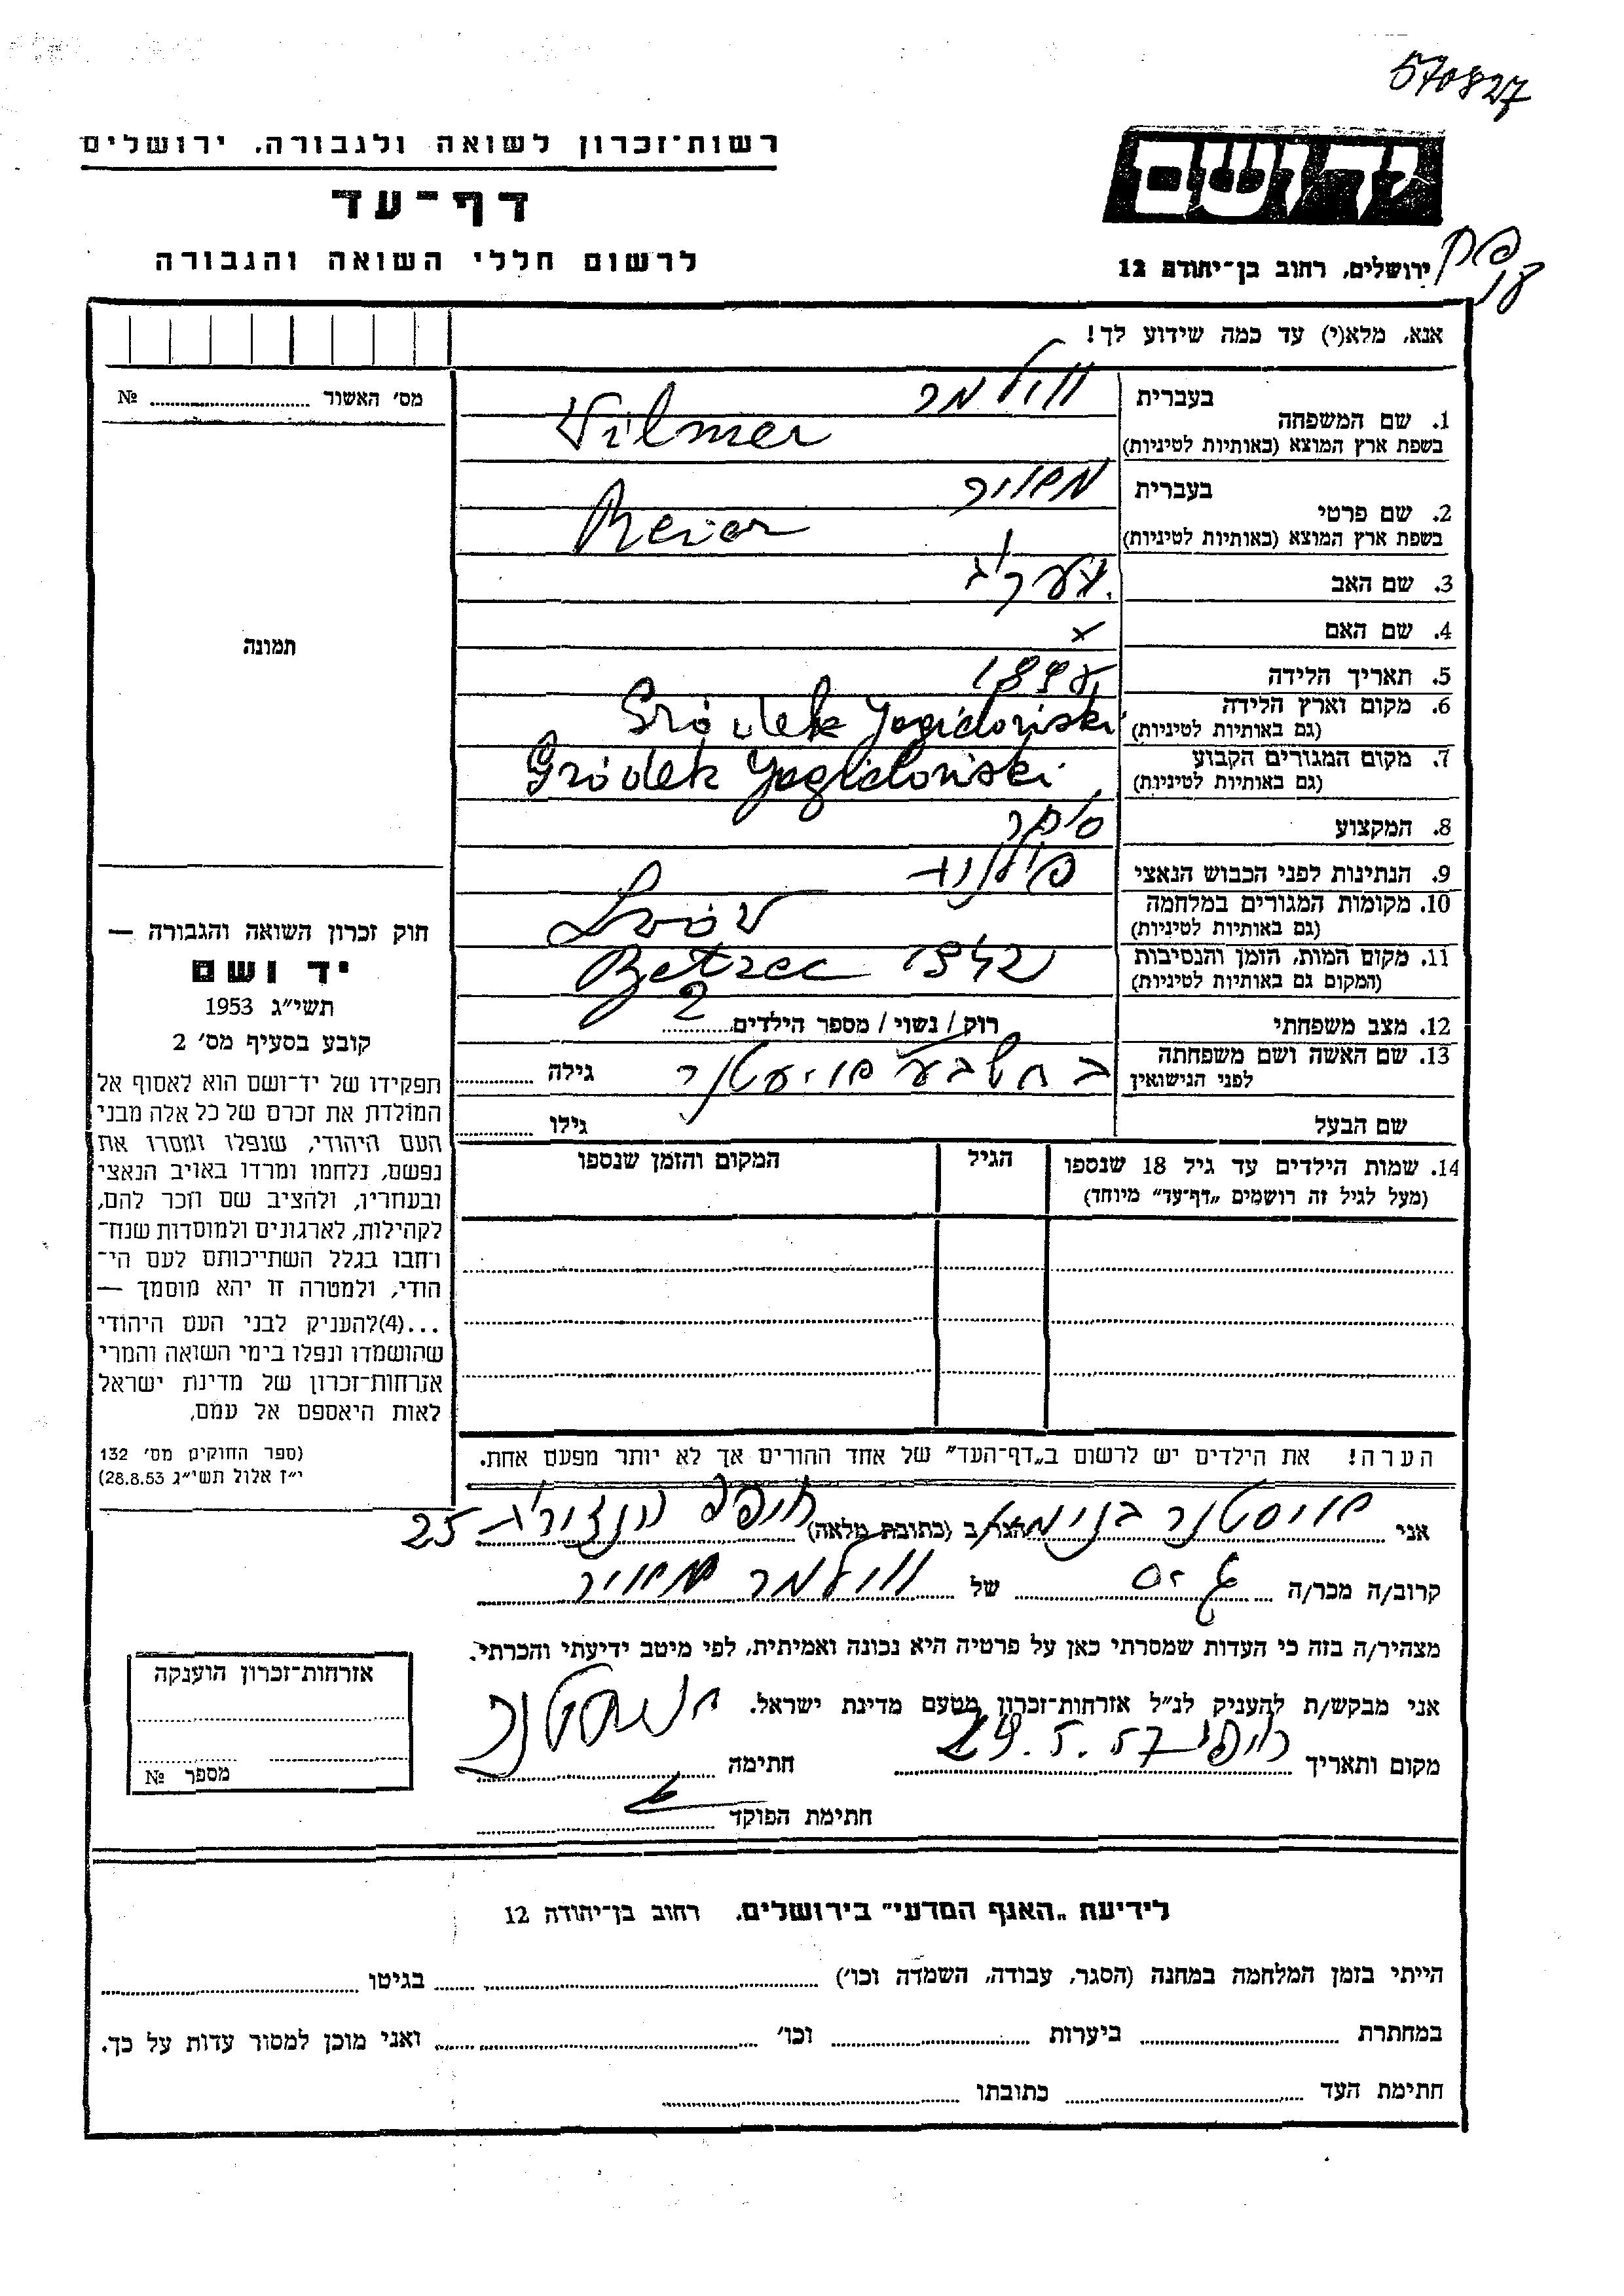 570827
רשות־זכרון לשואה ולגבורה, ירושלים
יד ושם
דף־עד
לרשום חללי השואה והגבורה
ירושלים, רחוב בן־יהודה 12
אנא, מלא(י) עד כמה שידוע לך!
מס׳ האשור № 
1. שם המשפחה בעברית ווילמר
בשפת ארץ המוצא (באותיות לטיניות) Vilmer
2. שם פרטי בעברית
בשפת ארץ המוצא (באותיות לטיניות)
3. שם האב
4. שם האם x
5. תאריך הלידה
6. מקום וארץ הלידה Gródek Jagieloński
(גם באותיות לטיניות)
7. מקום המגורים הקבוע Gródek Jagieloński
(גם באותיות לטיניות)
8. המקצוע סוחר
9. הנתינות לפני הכבוש הנאצי
10. מקומות המגורים במלחמה Lwów
(גם באותיות לטיניות)
11. מקום המות, הזמן והנסיבות Betzec 1942
(המקום גם באותיות לטיניות)
12. מצב משפחתי רוק / נשוי / מספר הילדים 2
13. שם האשה ושם משפחתה
לפני הנישואין גילה
שם הבעל גילו
14. שמות הילדים עד גיל 18 שנספו הגיל המקום והזמן שנספו
(מעל לגיל זה רושמים „דף־עד״ מיוחד)
הערה! את הילדים יש לרשום ב„דף־העד״ של אחד ההורים אך לא יותר מפעם אחת.
תמונה
חוק זכרון השואה והגבורה —
יד ושם
תשי״ג 1953
קובע בסעיף מס׳ 2
תפקידו של יד־ושם הוא לאסוף אל
המולדת את זכרם של כל אלה מבני
העם היהודי, שנפלו ומסרו את
נפשם, נלחמו ומרדו באויב הנאצי
ובעוזריו, ולהציב שם וזכר להם,
לקהילות, לארגונים ולמוסדות שנח־
רחבו בגלל השתייכותם לעם הי־
הודי, ולמטרה זו יהא מוסמך —
...(4)להעניק לבני העם היהודי
שהושמדו ונפלו בימי השואה והמרי
אזרחות־זכרון של מדינת ישראל
לאות היאספם אל עמם,
(ספר החוקים מס׳ 132
י״ז אלול תשי״ג 28.8.53)
אני בנימין הגר ב (כתובת מלאה) חיפה 25
קרוב/ה מכר/ה גיס של ווילמר
מצהיר/ה בזה כי העדות שמסרתי כאן על פרטיה היא נכונה ואמיתית, לפי מיטב ידיעתי והכרתי.
אני מבקש/ת להעניק לנ״ל אזרחות־זכרון מטעם מדינת ישראל.
מקום ותאריך חיפה 29.5.57 חתימה
חתימת הפוקד
אזרחות־זכרון הוענקה
מספר №
לידיעת „האגף המדעי״ בירושלים, רחוב בן־יהודה 12
הייתי בזמן המלחמה במחנה (הסגר, עבודה, השמדה וכו׳) בגיטו
במחתרת ביערות וכו׳ ואני מוכן למסור עדות על כך.
חתימת העד כתובתו